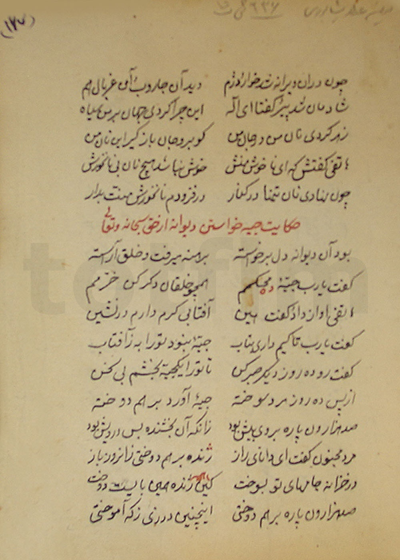 چون در آن ویرانه شد خوار و دژم دید آن جاروب و آن غربال هم
شادمان شد پیر گفتا ای اله این چرا کردی جهان بر من سیاه
زهر کردی نان من در جان من کو برو جان باز گیر این نان من
هاتفی گفتش که ای ناخوش منش خوش نیاید هیچ نان بی نانخورش
چون نهادی نان تنها در کنار در فزودم نانخورش منت بدار
حکایت جبه خواستن دیوانه از حق سبحانه و تعالی
بود آن دیوانه دل برخواسته برهنه میرفت و خلق آراسته
گفت یارب جبهٔ ده محکمم همچو خلقان دگر کن خرمم
هاتفی آواز داد گفت هین آفتابی گرم دارم در نشین
گفت یارب تا کیم داری عتاب جبهٔ نبود تو را به ز آفتاب
گفت رو ده روز دیگر صبر کن تا تو را یک جبه بخشم بی سخن
از پس ده روز مرد سوخته جبهٔ آورد بر هم دوخته
صد هزاران پاره بر وی بیش بود زانکه آن بخشنده بس درویش بود
مرد مجنون گفت ای دانای راز ژنده بر هم دوختی زان روز باز
در خزانه جامهای تو بسوخت کین همه ژنده همی بایست دوخت
صد هزاران پاره بر هم دوختی اینچنین درزی ز که آموختی